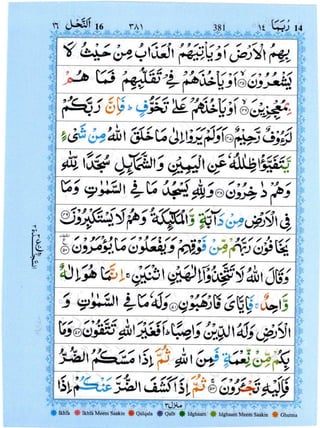 رُبَمَا ١٤ 14 381 ٣٨١ اَلنَّحْل ١٦ 16
بِهِمُ الْاَرْضَ اَوْ يَاْتِيَهُمُ الْعَذَابُ مِنْ حَيْثُ لَا
يَشْعُرُوْنَ ﴿٤٥﴾ اَوْ يَاْخُذَهُمْ فِيْ تَقَلُّبِهِمْ فَمَا هُمْ
بِمُعْجِزِيْنَ ﴿٤٦﴾ اَوْ يَاْخُذَهُمْ عَلٰى تَخَوُّفٍ ؕ فَاِنَّ رَبَّكُمْ
لَرَءُوْفٌ رَّحِيْمٌ ﴿٤٧﴾ اَوَلَمْ يَرَوْا اِلٰى مَا خَلَقَ اللّٰهُ مِنْ شَيْءٍ
يَّتَفَيَّؤُا ظِلٰلُهٗ عَنِ الْيَمِيْنِ وَالشَّمَآئِلِ سُجَّدًا لِّلّٰهِ
وَهُمْ دٰخِرُوْنَ ﴿٤٨﴾ وَلِلّٰهِ يَسْجُدُ مَا فِي السَّمٰوٰتِ وَمَا
فِي الْاَرْضِ مِنْ دَآبَّةٍ وَّالْمَلٰٓئِكَةُ وَهُمْ لَا يَسْتَكْبِرُوْنَ ﴿٤٩﴾
يَخَافُوْنَ رَبَّهُمْ مِّنْ فَوْقِهِمْ وَيَفْعَلُوْنَ مَا يُؤْمَرُوْنَ ﴿٥٠﴾
وَقَالَ اللّٰهُ لَا تَتَّخِذُوْٓا اِلٰهَيْنِ اثْنَيْنِ ۚ اِنَّمَا هُوَ اِلٰهٌ
وَّاحِدٌ ۚ فَاِيَّايَ فَارْهَبُوْنِ ﴿٥١﴾ وَلَهٗ مَا فِي السَّمٰوٰتِ وَ
الْاَرْضِ وَلَهُ الدِّيْنُ وَاصِبًا ؕ اَفَغَيْرَ اللّٰهِ تَتَّقُوْنَ ﴿٥٢﴾ وَمَا
بِكُمْ مِّنْ نِّعْمَةٍ فَمِنَ اللّٰهِ ثُمَّ اِذَا مَسَّكُمُ الضُّرُّ
فَاِلَيْهِ تَجْـَٔرُوْنَ ﴿٥٣﴾ ثُمَّ اِذَا كَشَفَ الضُّرَّ عَنْكُمْ اِذَا
منزل ٣
Ikhfa Ikhfa Meem Saakin Qalqala Qalb Idghaam Idghaam Meem Saakin Ghunna